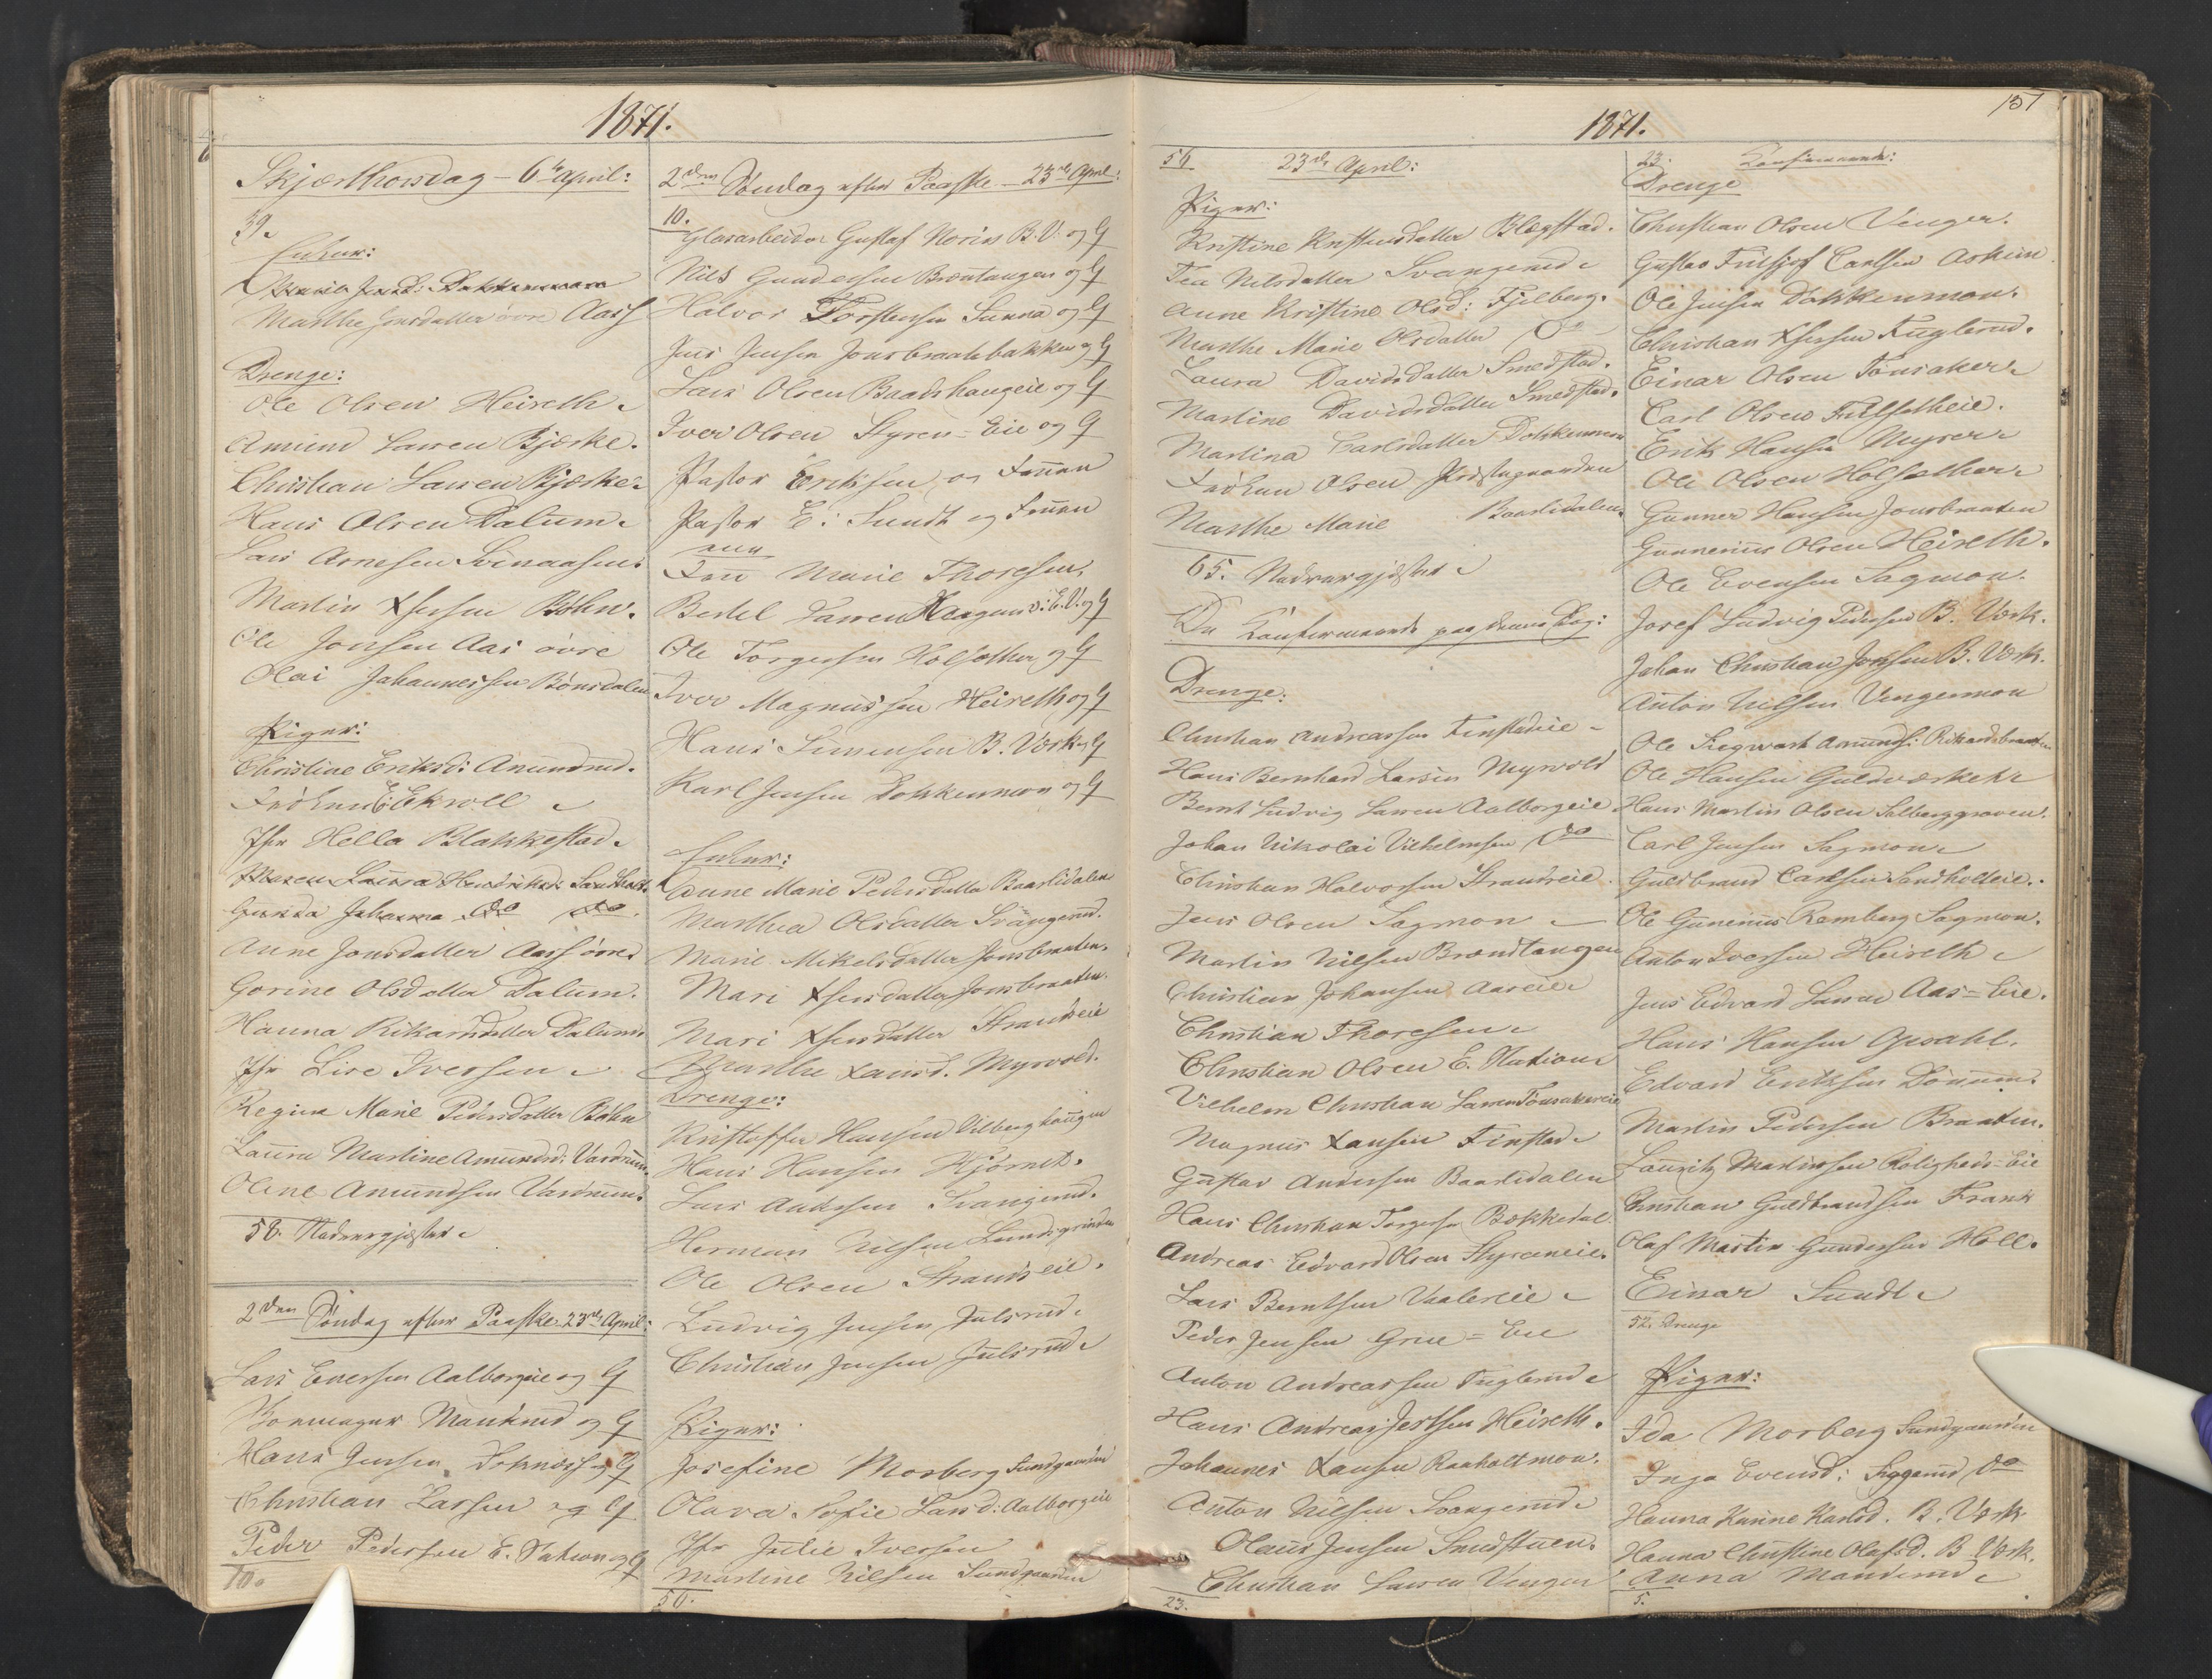 1871.
Skjærthorsdag – 6te April:
39.
Enkur:
Marthe Jonsdatter øvre Aass
Drenge:
Ole Olsen Heireth.
Amund Larsen Bjørke.
Christian Larsen Bjørke.
Hans Olsen Dalum.
Lars Arnesen
Martin Xhersen Bøhn.
Ole Jonsen Aas øvre
Olai Johannessen Bønsdalen
Piger:
Christine Eriksd: Amundrud.
Frøken E: Ekroll
Jfr Hella Blakkestad.
Maren Laura Hendriksd:
Gunda Johanna do do.
Anne Jonsdatter Aass øvre
Gorine Olsdatter Dalum.
Hanna Rikardsdatter Dalum.
Jfr Lise Iversen.
Regine Marie Pedersdatter Bøhn
Laura Martine Amundsd: Vardrum.
Oline Amundsen Vardrum.
58. Nadvergjæster.
2den Søndag efter Paaske. 23de April:
Lars Eversen Aalborgeie og G
Mankrud og G
Hans Jensen Doknæss og G
Christian Larsen og G
Peder Pedersen E. Station og G
10.
2den Søndag efter Paaske – 23de April:
10.
Glasarbeider Gustaf Norin B.V. og G
Nils Gundersen Brøntangen og G
Halvor Torstensen Sunna og G
Jens Jensen Jonsbraatebakken og G
Lars Olsen Baadshaugeie og G
Iver Olsen Styren-Eie og G
Pastor Eriksen og Fruen
Pastor E: Sundt og Fruen
Fru Marie Thoresen.
Bertel Larsen Haagens v: E.V. og G
Ole Torgersen Holsæther og G
Iver Magnussen Heireth og G
Hans Simensen B. Værk og G
Karl Jensen Dokkenmon og G
Enkur:
Anne Marie Pedersdatter Baarlidalen
Marthea Olsdatter Svangerud.
Marie Mikelsdatter Jonsbraaten.
Mari Xhersdatter Jonsbraaten.
Mari Xhersdatter Strandeie
Marthe Larsd. Myrvold.
Drenge:
Kristoffer Hansen Vilberghaugen
Hans Hansen Hjørnet.
Lars Svangerud.
Herman Nilsen Lundsgrinden
Ole Olsen Strandseie.
Ludvig Jensen Julsrud.
Christian Jensen Julsrud.
Piger:
Josefine Morberg Sundgaarden
Olava Sofie Larsd: Aalborgeie
Jfr Julie Iversen
Martine Nilsen Sundgaarden
56.
1871.
56
23de April:
Piger:
Kristine Kristensdatter Blegstad.
Tea Nilsdatter Svangerud.
Anne Kristine Olsd: Fjelberg.
Marthe Marie Olsdatter do
Laura Davidsdatter Smedstad.
Martine Davidsdatter Smedstad.
Martina Carlsdatter Dokkenmon
Frøken Olsen Præstegaarden
Marthe Marie Baarlidalen.
65. Nadvergjæster.
De Konfirmerende paa denne Dag:
Drenge:
Christian Andreassen Finstadeie
Hans Bernhard Larsen Myrvold
Bernt Ludvig Larsen Aalborgeie
Johan Nikolai Vilhelmsen do
Christian Halvorsen Strandseie.
Jens Olsen Sagmon
Martin Nilsen Brændtangen
Christian Johansen Aaseie
Christian Thoresen.
Christian Olsen E. Station
Vilhelm Christian Larsen Tønsakereie
Magnus Larsen Finstad.
Gustav Andersen Baarlidalen
Hans Christian Torgersen Bækkedal
Andreas Edvard Olsen Styreneie.
Lars Berntsen Vaalereie.
Peder Jensen Grue=Eie
Anton Andreassen Fuglerud.
Hans Andreas Jertsen Heireth.
Johannes Larsen Raaholtmon.
Anton Nilsen Svangerud.
Olaus Jensen Smedstuen.
Christian Larsen Venger
23.
151
23.
Konfirmerende:
Drenge
Christian Olsen Venger.
Gustav Fritsjof Carlsen Askim.
Ole Jensen Dokkenmon.
Christian Xhersen Fuglerud.
Einar Olsen Tønsaker.
Carl Olsen
Erik Hansen Myrer.
Ole Olsen Holsæther.
Gunner Hansen Jonsbraaten
Gunnerius Olsen Heireth.
Ole Evensen Sagmon.
Josef Ludvig Pedersen B. Værk.
Johan Christian Jonsen B. Værk.
Anton Nilsen Vengermon
Ole Siegwart Amunds: Rikardsbraaten
Ole Hansen Guldværket.
Hans Martin Olsen Sølberggroven.
Carl Jensen Sagmon.
Guldbrand Carlsen Sandholteie.
Ole Gunerius Ramberg Sagmon.
Anton Iversen Heireth.
Jens Edvard Larsen Aas=Eie.
Hans Hansen Gjesahl.
Edvard Eriksen Dønnum.
Martin Pedersen Braaten.
Lauritz Martinsen Roligheds-Eie
Christian Guldbrandsen Frank
Olaf Martin Gundersen Holl.
Einar Sundt.
52. Drenge
Piger:
Ida Morberg Sundgaarden
Inga Evensd: Syggerud do
Hanna Karine Karlsd. B. Værk
Hanna Christine Olafsd. B Værk.
Anna Mandrud.
5.